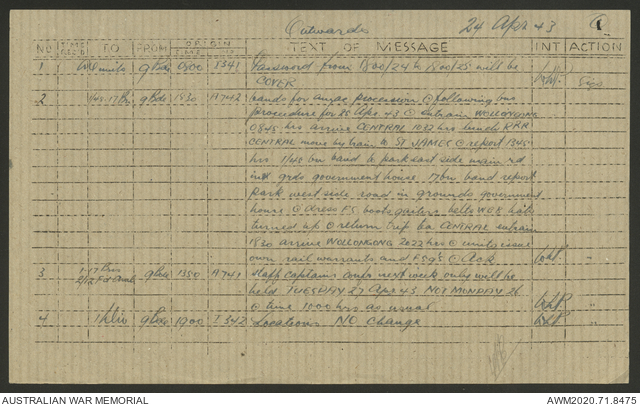 Outwards 24 Apr 43
ORIGIN
NO TIME TO FROM TEXT OF MESSAGE INT ACTION
1 All units 9 Bde 0800 I341 Password from 1800/24 to 1800/25 will be Sigs
COVER
2 1/45-17 Bn 9 Bde 1530 A742 bands for anzac procession @ following bus
procedure for 25 Apr 43 @ Entrain WOLLONGONG
0845 hrs arrive CENTRAL 1032 hrs lunch RRR
CENTRAL move by train to ST JAMES @ report 1345
hrs 1/45 bn band to park east side main rd
in grds government house 17 bn band report
park west side road in grounds government
house @ dress FS boots gaiters belts WEB hats
turned up @ return trip via CENTRAL entrain
1830 arrive WOLLONGONG 2022 hrs @ units issue
own rail warrants and @ Ack "
3 9 Bde 1350 A741 staff captains conf next week only will be
held TUESDAY 27 Apr 43 NOT MONDAY 26
@ time 1000 hrs as usual "
4 1 Div 9 Bde 1900 I342 Locations NO Change "
AUSTRALIAN WAR MEMORIAL AWM2020.71.8475